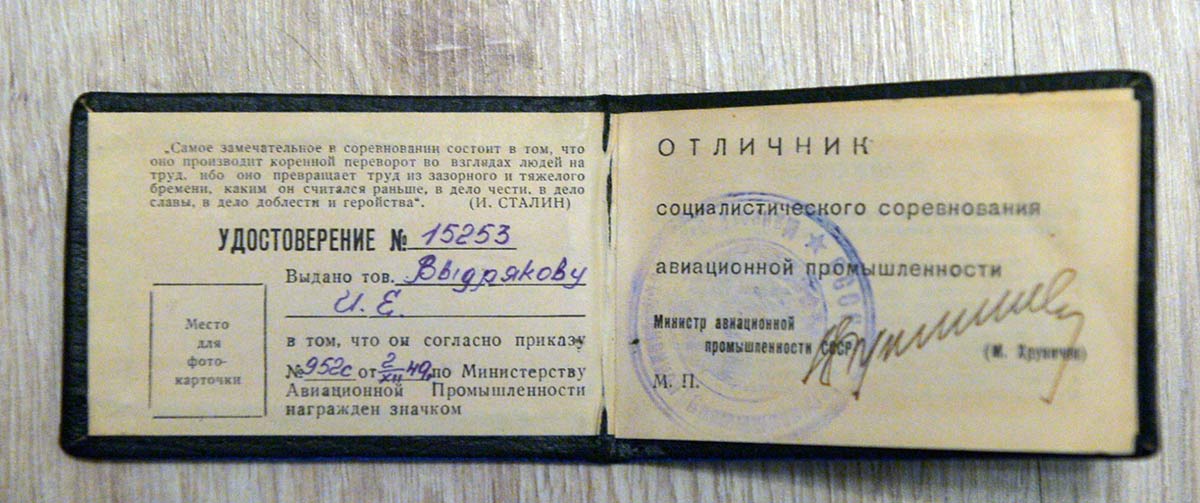 „Самое замечательное в соревновании состоит в том, что
оно производит коренной переворот во взглядах людей на
труд, ибо оно превращает труд из зазорного и тяжелого
бремени, каким он считался раньше, в дело чести, в дело
славы, в дело доблести и геройства“. (И. СТАЛИН)
УДОСТОВЕРЕНИЕ № 15253
Выдано тов. Выдрякову
И. Е.
Место
для
фото-
карточки
в том, что он согласно приказу
№ 952с от 2/XII 49г по Министерству
Авиационной Промышленности
награжден значком
ОТЛИЧНИК
социалистического соревнования
авиационной промышленности
Министр авиационной
промышленности СССР
(М. Хруничев)
М. П.
СССР